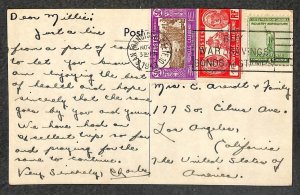 Dear Millie:
Just a line
from a part of
to let you know
am enjoying the best
of health and hope
sincerely that the same
goes by you and yours.
We have had an
excellent trip so far
and praying for the
same to continue.
Very Sincerely, Charles
Post
NOV
WAR SAVINGS
BONDS
Mrs. C. Arndt & Family
177 So. Citrus Ave.
Los Angeles,
California
The United States of
America.